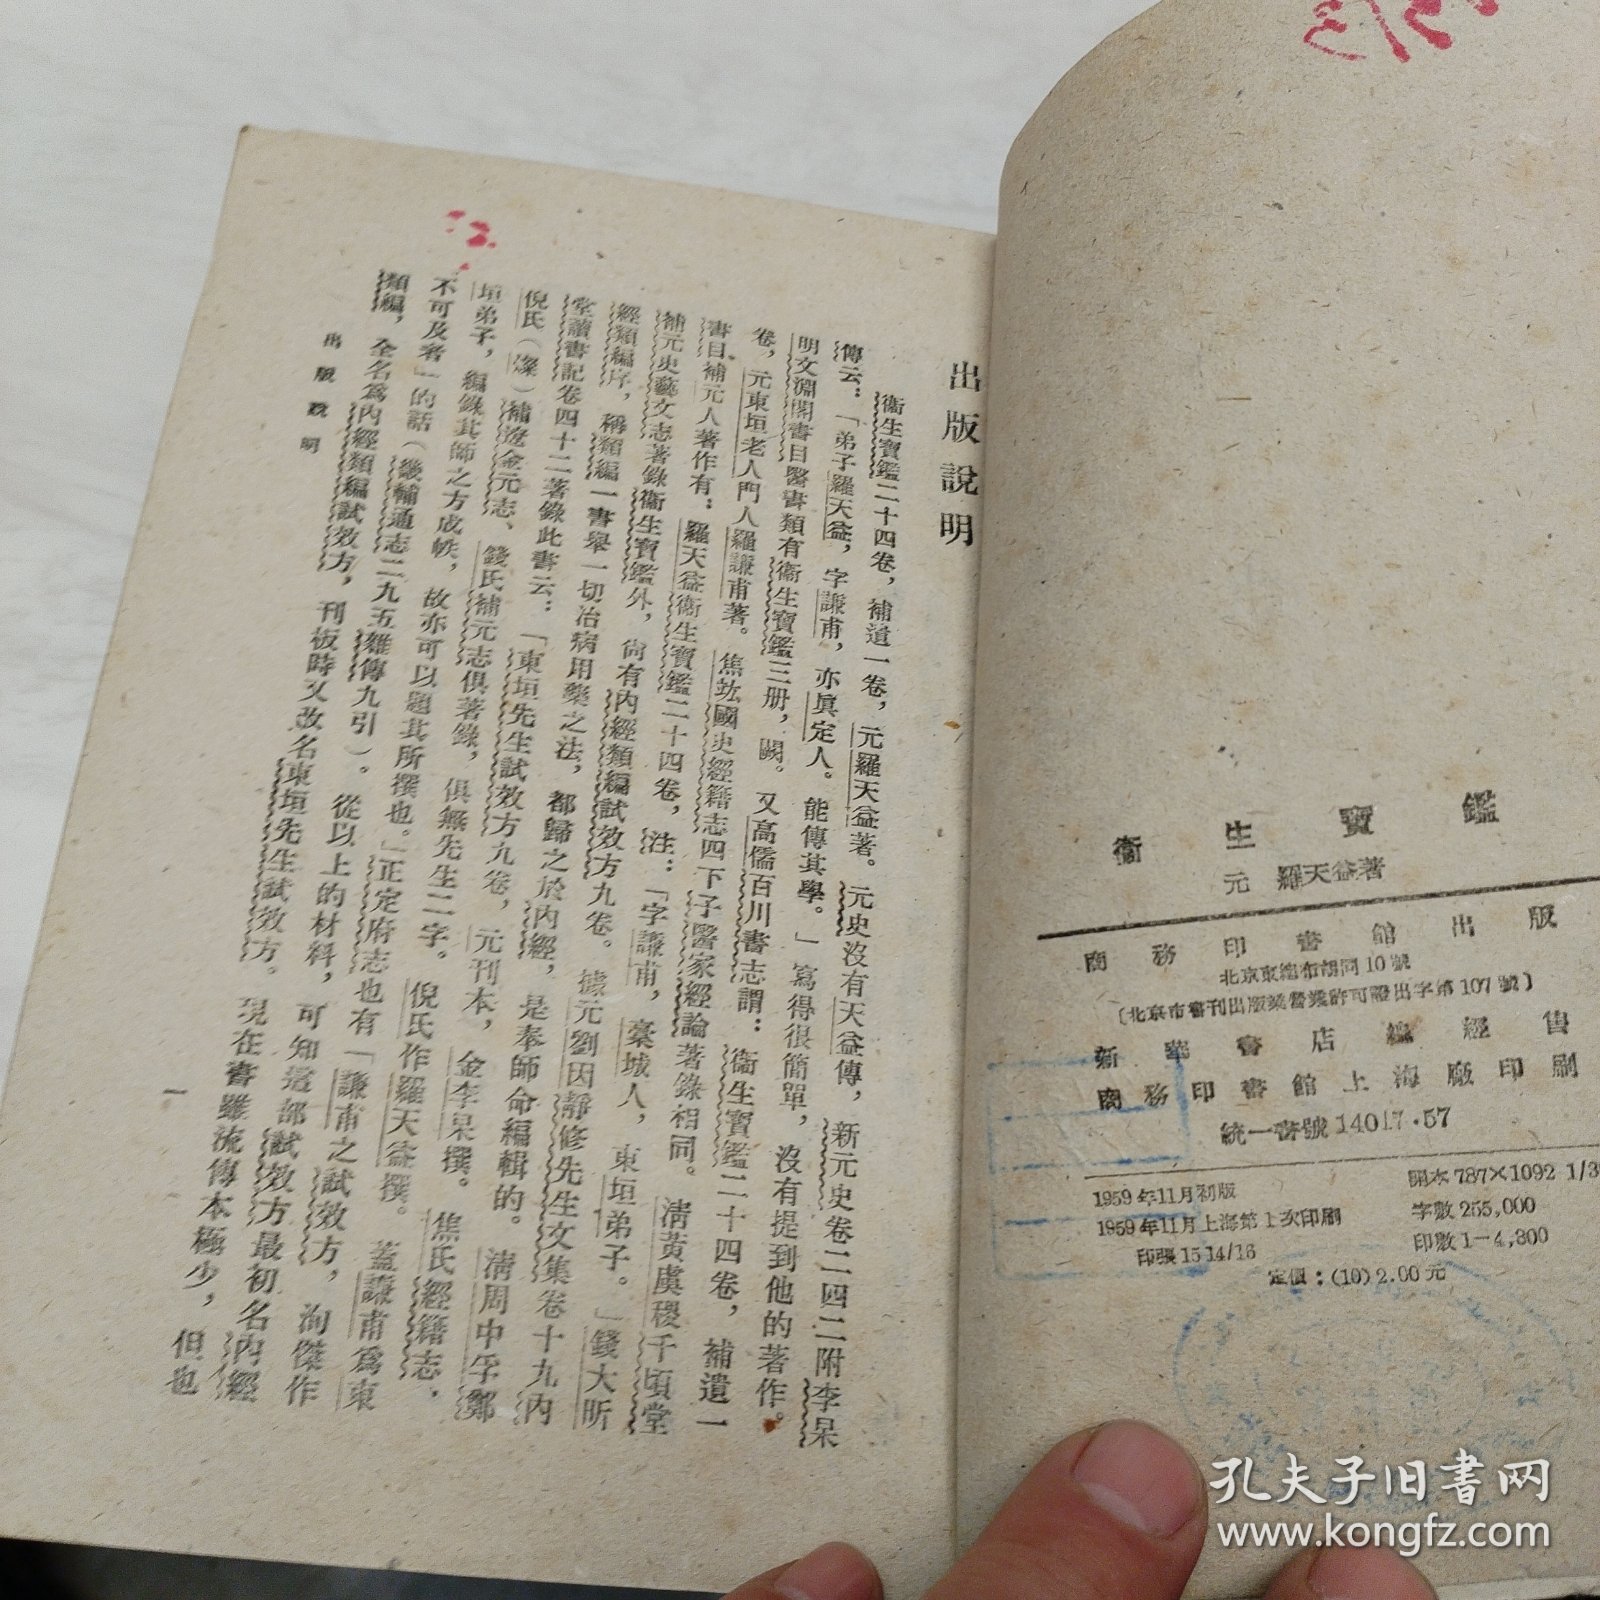 出版說明
衞生寶鑑二十四卷，補遺一卷，元羅天益著。元史沒有天益傳，新元史卷二四二附李杲
傳云：「弟子羅天益，字謙甫，亦眞定人。能傳其學。」寫得很簡單，沒有提到他的著作。
明文淵閣書目醫書類有衞生寶鑑三册，闕。又高儒百川書志謂：衞生寶鑑二十四卷，補遺一
卷，元東垣老人門人羅謙甫著。焦竑國史經籍志四下子醫家經論著錄相同。淸黃虞稷千頃堂
書目補元人著作有：羅天益衞生寶鑑二十四卷，注：「字謙甫，藁城人，東垣弟子。」錢大昕
補元史藝文志著錄衞生寶鑑外，尙有內經類編試效方九卷。據元劉因靜修先生文集卷十九內
經類編序，稱類編一書舉一切治病用藥之法，都歸之於內經，是奉師命編輯的。淸周中孚鄭
堂讀書記卷四十二著錄此書云：「東垣先生試效方九卷，元刊本，金李杲撰。焦氏經籍志、
倪氏（燦）補遼金元志、錢氏補元志俱著錄，俱無先生二字。倪氏作羅天益撰。蓋謙甫爲東
垣弟子，編錄其師之方成帙，故亦可以題其所撰也。」正定府志也有「謙甫之試效方，洵傑作
不可及者」的話（畿輔通志二九五雜傳九引）。從以上的材料，可知這部試效方最初名內經
類編，全名爲內經類編試效方，刊板時又改名東垣先生試效方。現在書雖流傳本極少，但也
出版說明
一
衞生寶鑑
元 羅天益著
商務印書館出版
北京東總布胡同10號
〔北京市書刊出版業營業許可證出字第107號〕
新華書店總經售
商務印書館上海廠印刷
統一書號14017·57
1959年11月初版
開本787×1092 1/3
1959年11月上海第1次印刷
字數255,000
印張15 14/16
印數1—4,300
定價：(10)2.00元
孔夫子旧书网
www.kongfz.com